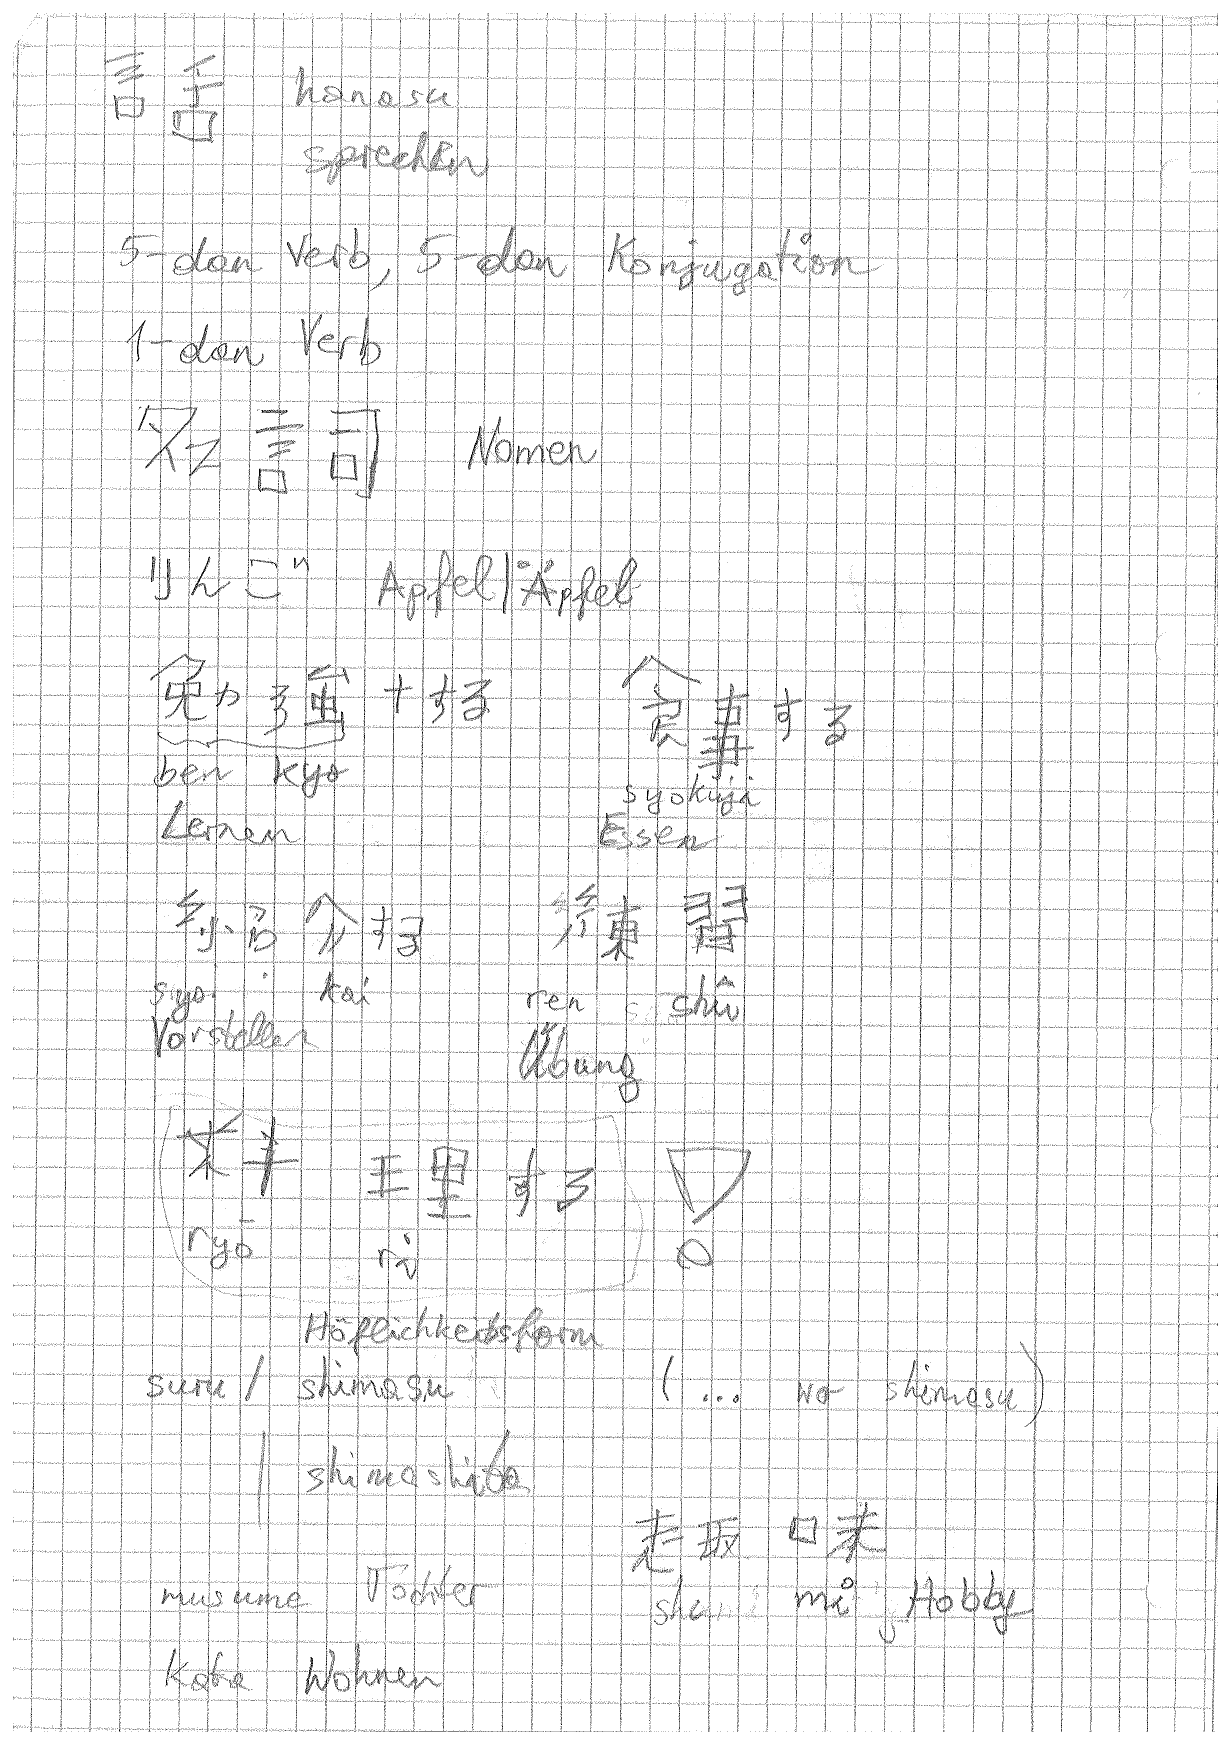 話 hanasu
sprechen
5-dan Verb, 5-dan Konjugation
1-dan Verb
名詞 Nomen
りんご Apfel/Äpfel
勉強 + する 食事する
ben kyo syokuji
Lernen Essen
紹介する 練習
syo kai ren shū
Vorstellen Übung
料理する
ryō ri
Höflichkeitsform
suru / shimasu (... wo shimasu)
| shimashita
趣味
musume Tochter shu mi Hobby
Wohnen